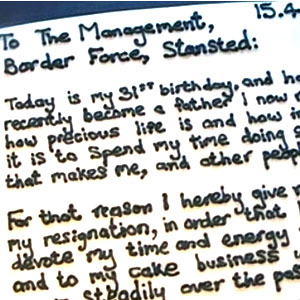 15.4
To The Management,
Border Force, Stansted:
Today is my 31st birthday, and h
recently become a father I now r
how precious life is and how i
it is to spend my time doing s
that makes me, and other peop
For that reason I hereby give n
my resignation, in order that
devote my time and energy
and to my cake business
st.adily over the pa